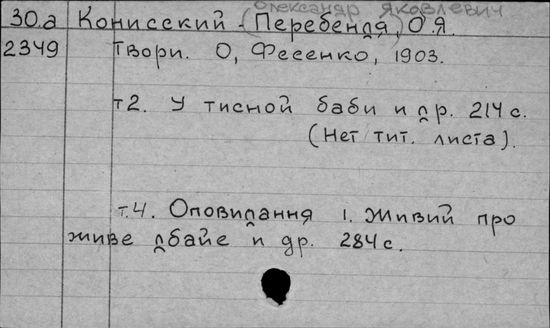 Олександр Яковлевич
30.а Конисский - (Перебендя, О.Я.
2349 Твори. О, Фесенко, 1903.
т2. У тисной баби и др. 214 с.
(Нет тит. листа).
т.4. Оповидання 1. Живий про
живе дбайе и др. 284 с.